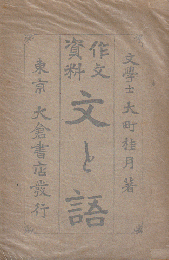 文學士 大町桂月著
作文
資料
文と語
東京 大倉書店發行